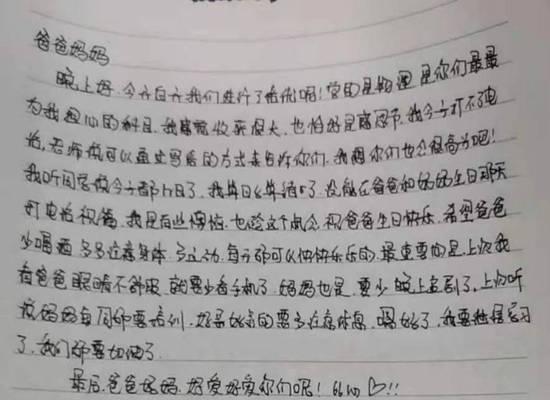 爸爸妈妈
晚上好,今天白天我们进行了培优呢!学的是物理,是你们最最
为我担心的科目,我
收获很大,也恰好是感恩节,我今天打不了电
话,老师说可以通过写
的方式来告诉你们,我想你们也会很高兴吧!
我听同学说今天都
日了,我算日
算错了,没能在爸爸和妈妈生日那天
打电话祝福,我是有些懊悔,也趁这个机会,祝爸爸生日快乐,希望爸爸
少喝酒,多多注意身体,多运动,每天都可以快快乐乐的,最重要的是上次我
看爸爸眼睛不舒服,就要少看手机了,妈妈也是,要少晚上追剧了,上次听
说妈妈每周都要培训,
的要多注意休息,
了,我要继续学习
了,我们都要加油了
最后,爸爸妈妈,好爱好爱你们呢!
♡!!